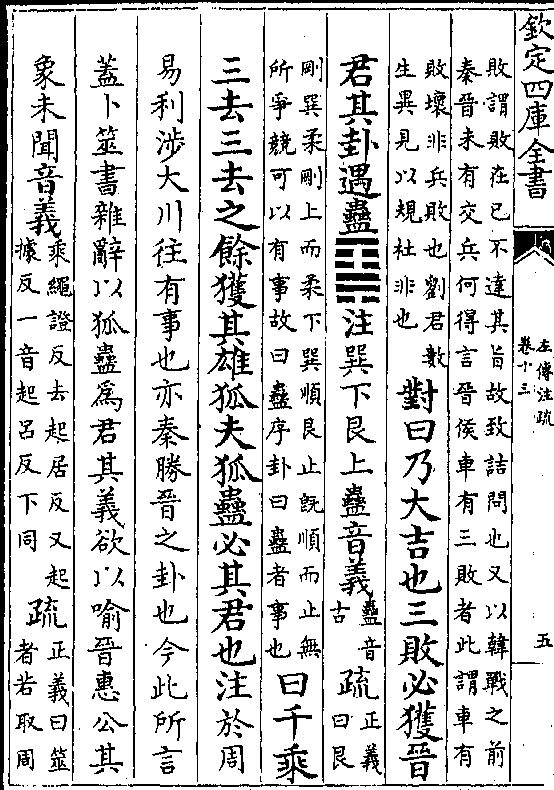 欽定四庫全書
左傳注疏
卷十三
五
敗謂敗在已不達其旨故致詰問也又以韓戰之前
秦晉未有交兵何得言晉侯車有三敗者此謂車有
敗壞非兵敗也劉君數
生異見以規杜非也
對曰乃大吉也三敗必獲晉
君其卦遇蠱䷑注巽下艮上蠱音義
蠱音
古
疏
正義
曰艮
剛巽柔剛上而柔下巽順艮止既順而止無
所爭競可以有事故曰蠱序卦曰蠱者事也
曰千乘
三去三去之餘獲其雄狐夫狐蠱必其君也注於周
易利涉大川往有事也亦秦勝晉之卦也今此所言
蓋卜筮書雜辭以狐蠱為君其義欲以喻晉惠公其
象未聞音義
乘繩證反去起居反又起
據反一音起呂反下同
疏
正義曰筮
者若取周